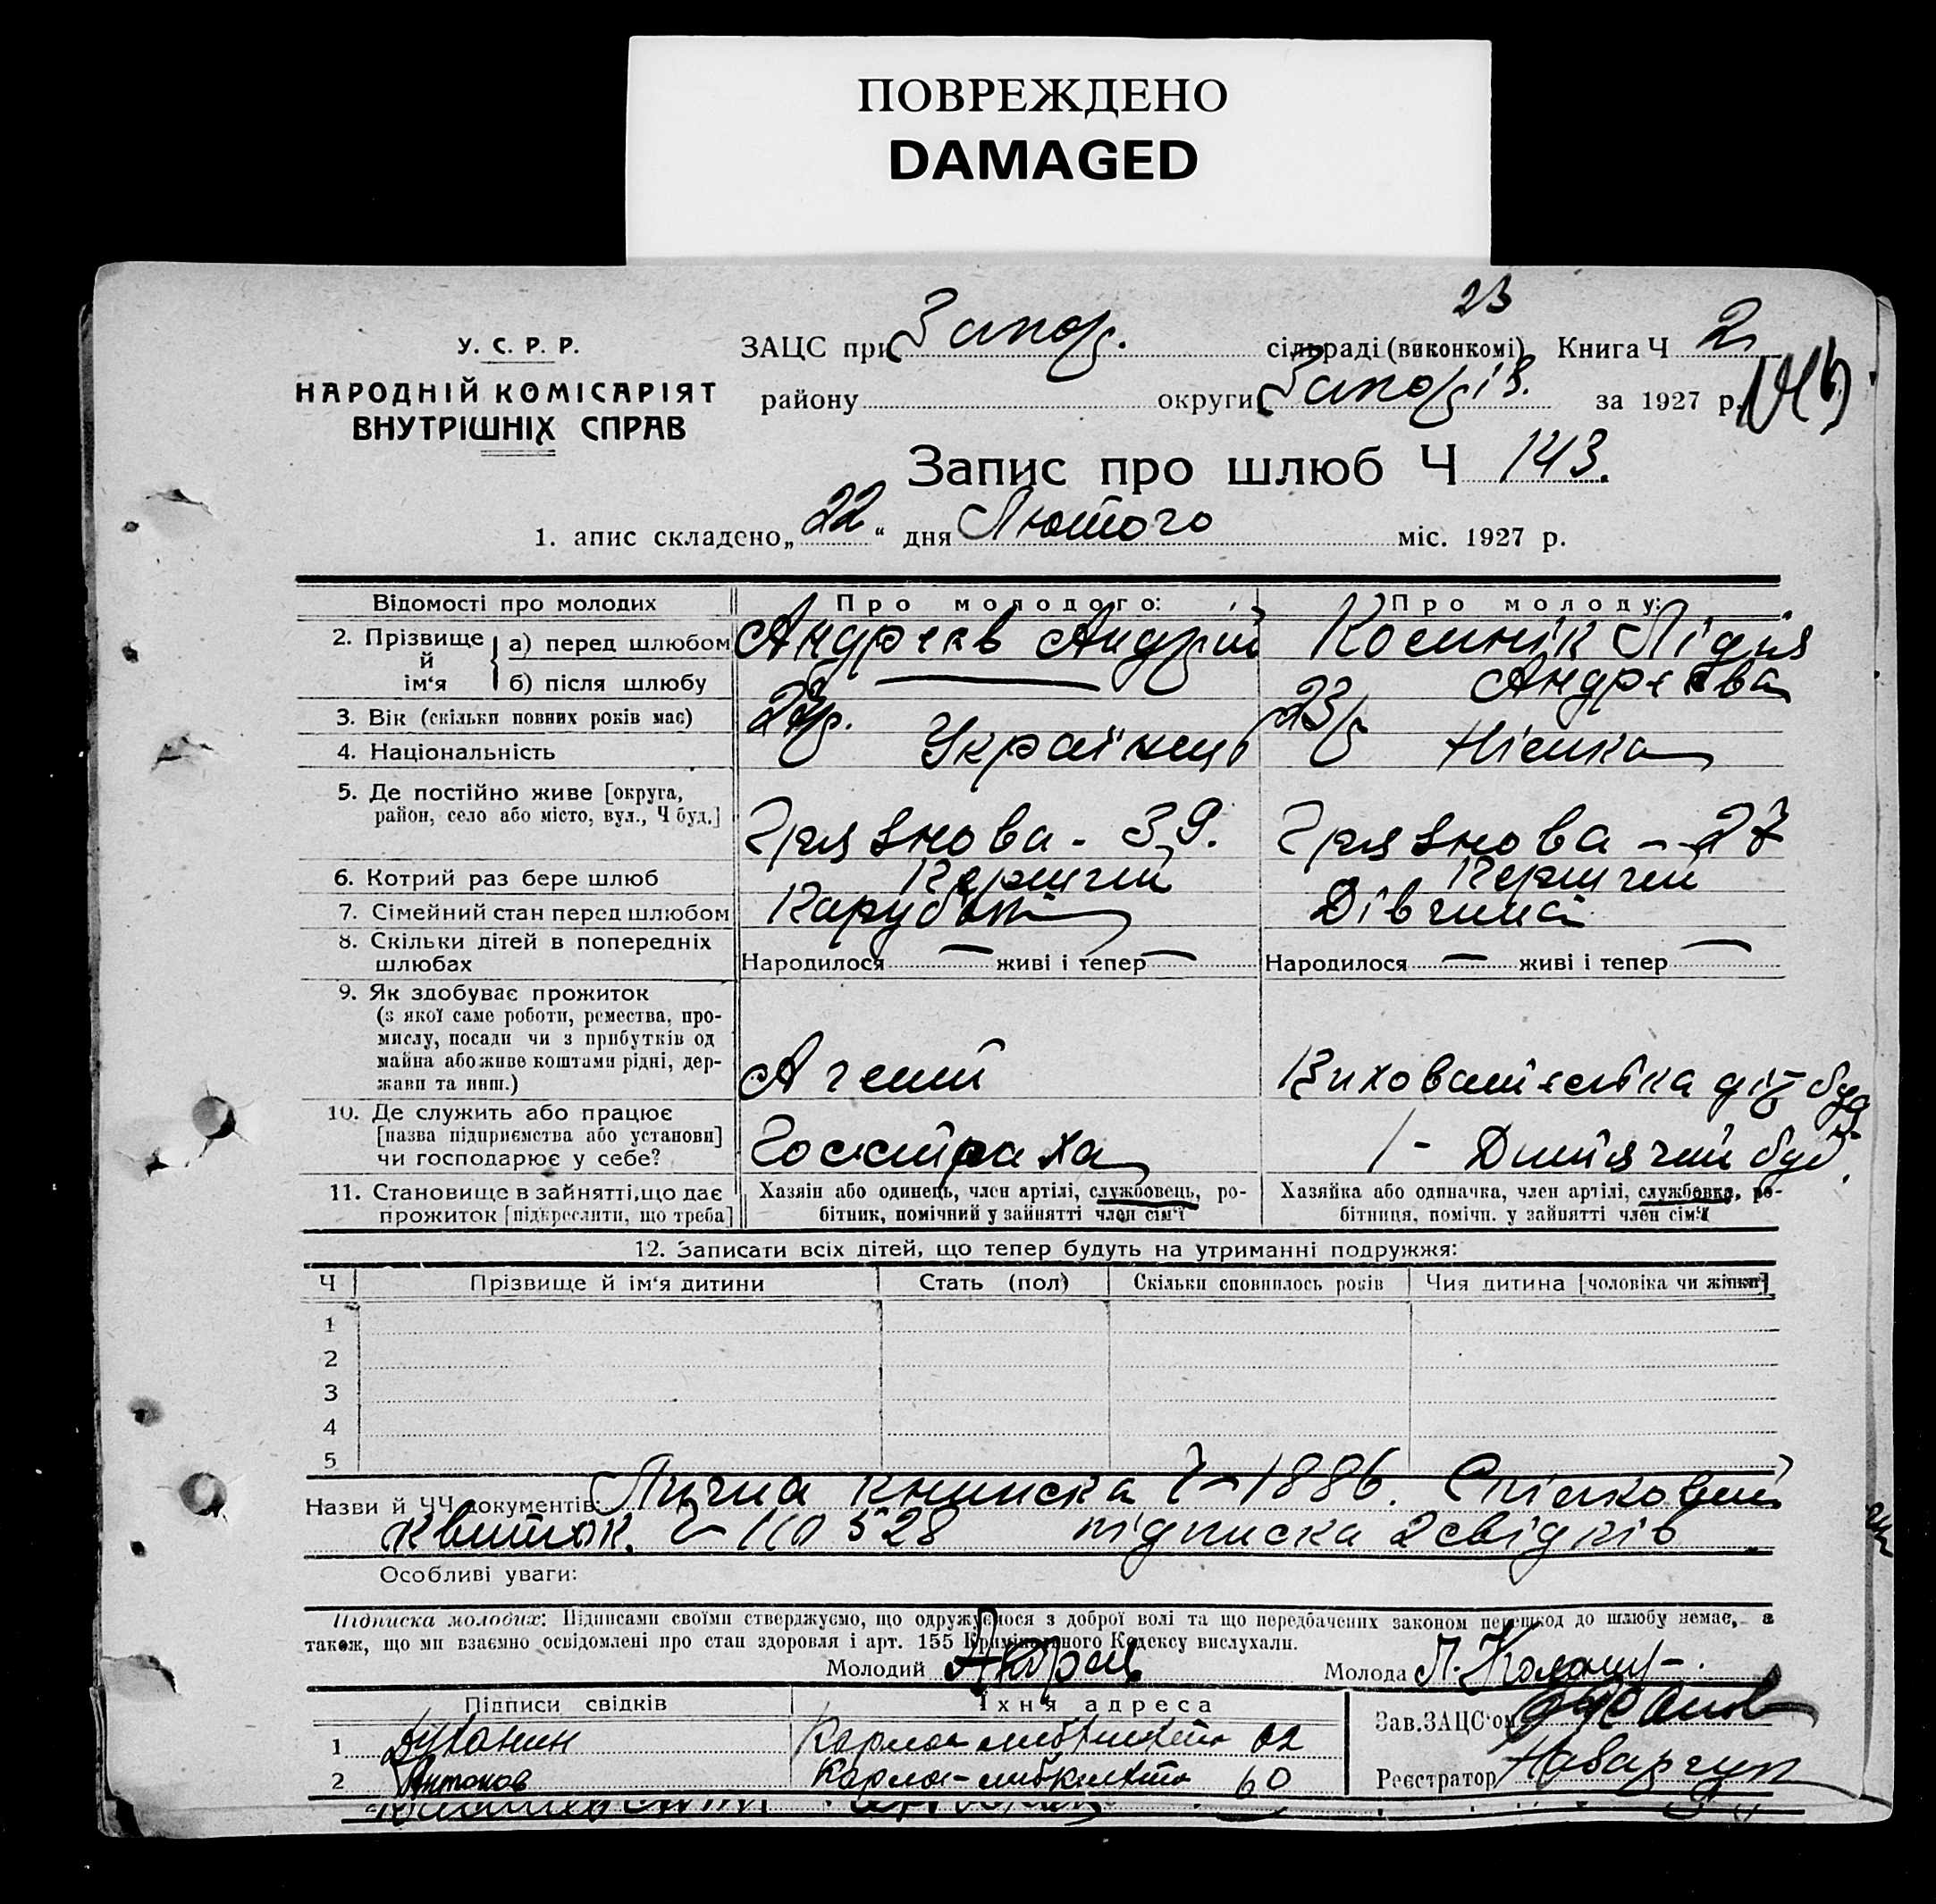 ПОВРЕЖДЕНО
DAMAGED
23
У. С. Р. Р.
НАРОДНІЙ КОМІСАРІЯТ
ВНУТРІШНІХ СПРАВ
ЗАЦС при Запор. сільраді (виконкомі) Книга Ч 2
району округи Запоріз. за 1927 р.
Запис про шлюб Ч 143.
1. апис складено „22“ дня Лютого міс. 1927 р.
Відомості про молодих Про молодого: Про молоду:
2. Прізвище й ім‘я а) перед шлюбом Андрєєв Андрій Лідія
б) після шлюбу — Андрєєва
3. Вік (скільки повних років має) 23р. 23р
4. Національність Українець Німка
5. Де постійно живе [округа,
район, село або місто, вул., Ч буд.] Грязнова - 39. Грязнова - 27
6. Котрий раз бере шлюб Перший Перший
7. Сімейний стан перед шлюбом Парубок Дівчина
8. Скільки дітей в попередніх
шлюбах Народилося — живі і тепер — Народилося — живі і тепер —
9. Як здобуває прожиток
(з якої саме роботи, ремества, про-
мислу, посади чи з прибутків од
майна або живе коштами рідні, дер-
жави та инш.) Агент Вихователька дит буд
10. Де служить або працює
[назва підприємства або установи]
чи господарює у себе? Госстраха 1- Дитячий буд.
11. Становище в зайнятті, що дає
прожиток [підкреслити, що треба]
Хазяїн або одинець, член артілі, службовець, ро-
бітник, помічний у зайнятті член сім‘ї
Хазяйка або одиначка, член артілі, службовка, ро-
бітниця, помічн. у зайнятті член сім‘ї
12. Записати всіх дітей, що тепер будуть на утриманні подружжя:
Ч Прізвище й ім‘я дитини Стать (пол) Скільки сповнилось років Чия дитина [чоловіка чи жінки]
1
2
3
4
5
Назви й ЧЧ документів: Лична книжка 7-1886. Спілковий
квиток. 528 підписка 2 свідків
Особливі уваги:
Підписка молодих: Підписами своїми стверджуємо, що одружуємося з доброї волі та що передбачених законом перешкод до шлюбу немає, а
також, що ми взаємно освідомлені про стан здоровля і арт. 155 Кримінального Кодексу вислухали.
Молодий Молода
Підписи свідків Їхня адреса Зав. ЗАЦС‘ом
1 Карла-либкнехта 62
2 Антонов Карла-либкнехта 60 Реєстратор